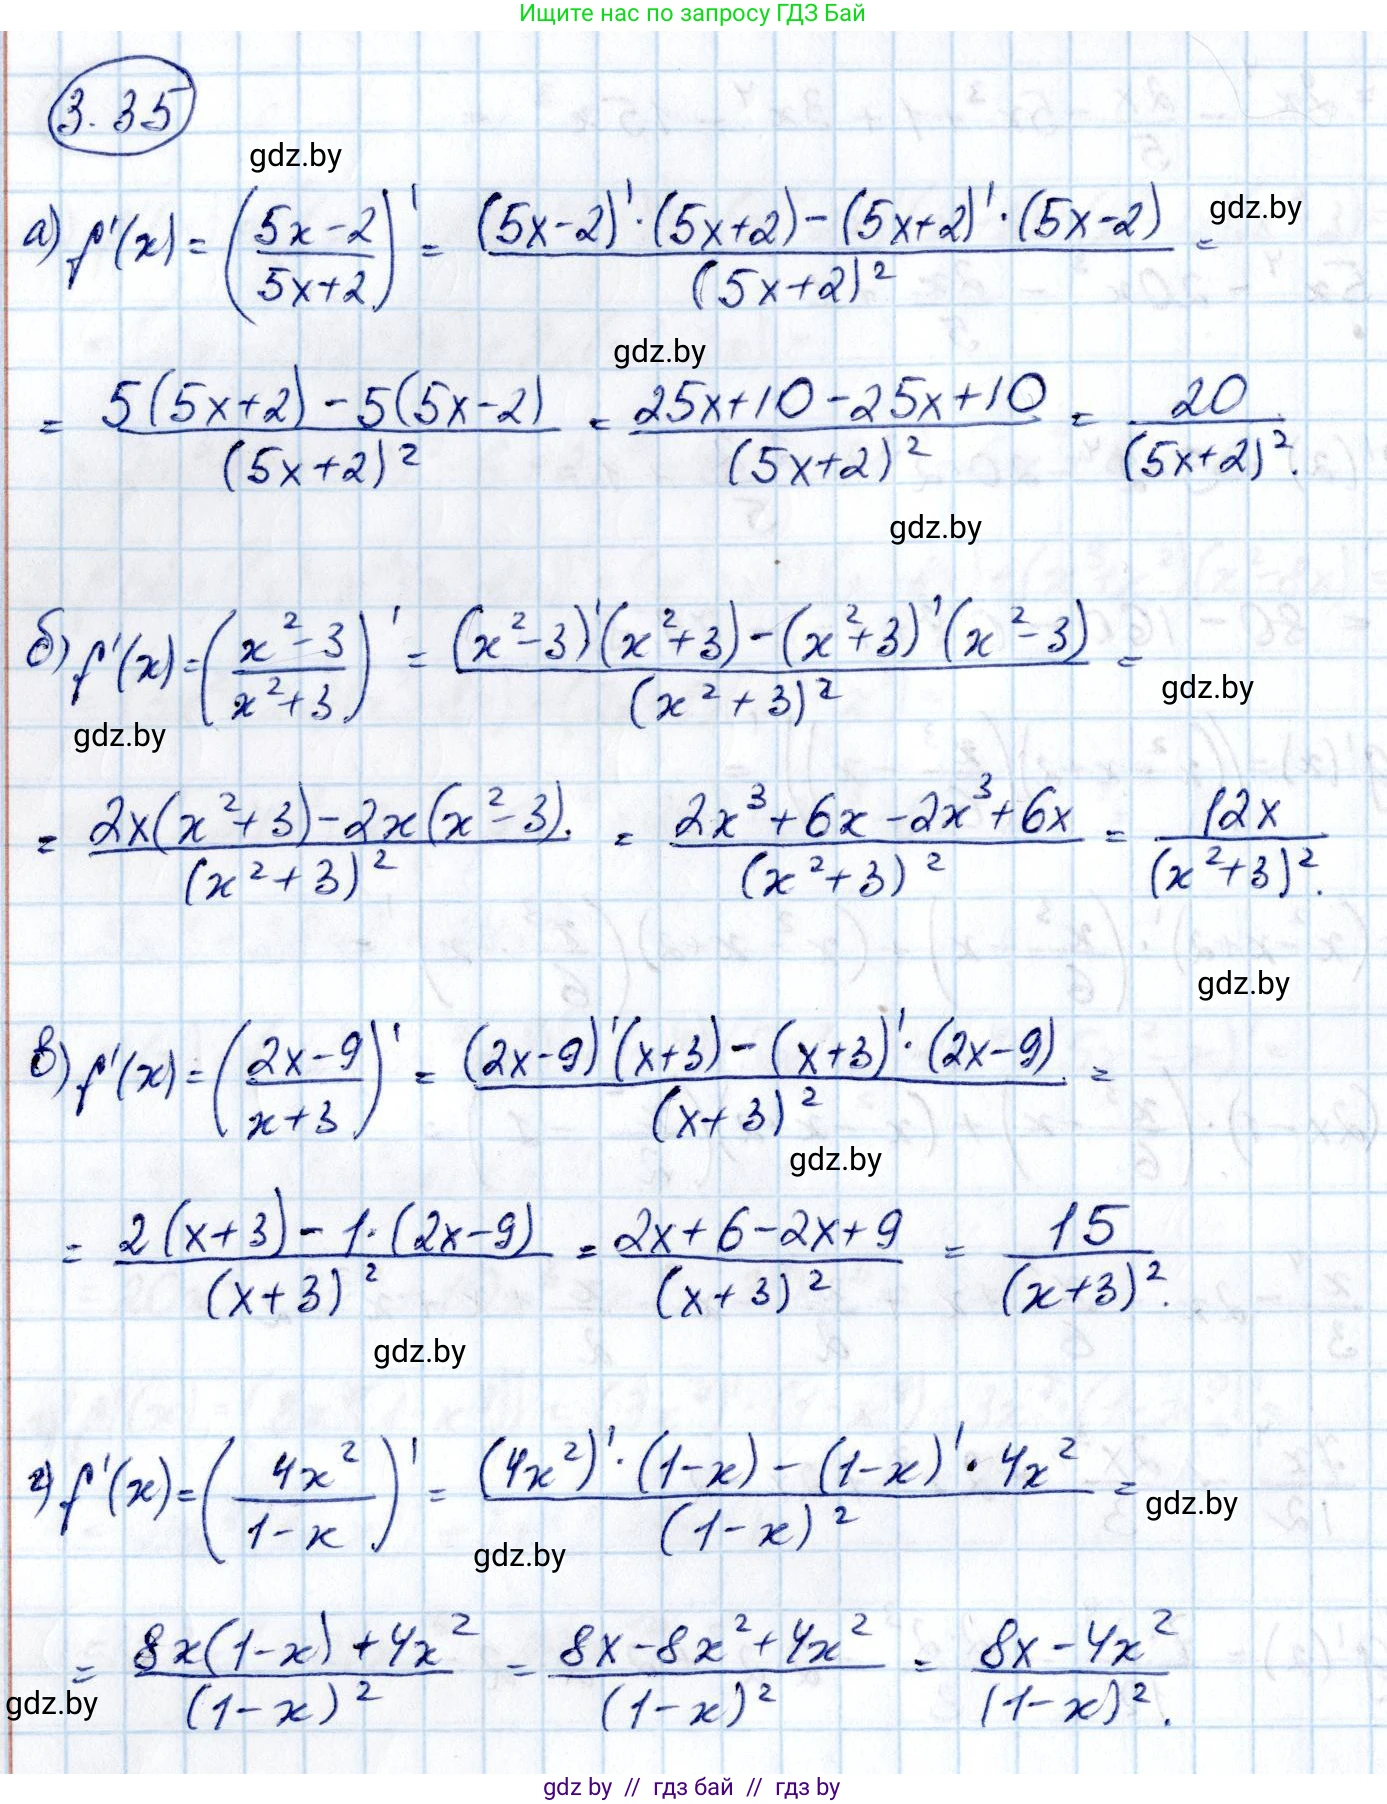 Ищите нас по запросу ГДЗ Бай
3.35
gdz.by
gdz.by
а) f'(x) = ((5x-2)/(5x+2))' = ((5x-2)'·(5x+2)-(5x+2)'·(5x-2))/(5x+2)² =
gdz.by
= (5(5x+2)-5(5x-2))/(5x+2)² = (25x+10-25x+10)/(5x+2)² = 20/(5x+2)².
gdz.by
б) f'(x) = ((x²-3)/(x²+3))' = ((x²-3)'(x²+3)-(x²+3)'(x²-3))/(x²+3)² =
gdz.by
gdz.by
= (2x(x²+3)-2x(x²-3))/(x²+3)² = (2x³+6x-2x³+6x)/(x²+3)² = 12x/(x²+3)².
gdz.by
в) f'(x) = ((2x-9)/(x+3))' = ((2x-9)'(x+3)-(x+3)'·(2x-9))/(x+3)² =
gdz.by
= (2(x+3)-1·(2x-9))/(x+3)² = (2x+6-2x+9)/(x+3)² = 15/(x+3)².
gdz.by
г) f'(x) = (4x²/(1-x))' = ((4x²)'·(1-x)-(1-x)'·4x²)/(1-x)² =
gdz.by
gdz.by
= (8x(1-x)+4x²)/(1-x)² = (8x-8x²+4x²)/(1-x)² = (8x-4x²)/(1-x)².
gdz.by
gdz by // гдз бай // гдз by